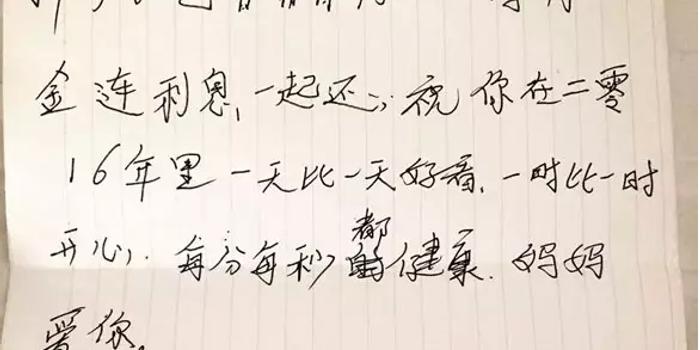 金连利息,一起还,祝你在二零
16年里一天比一天好看.一时比一时
开心,每分每秒都健康.妈妈
爱你.